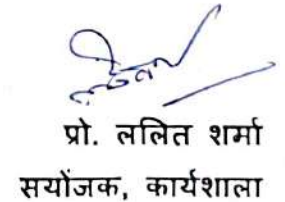 प्रो. ललित शर्मा
सयोंजक, कार्यशाला